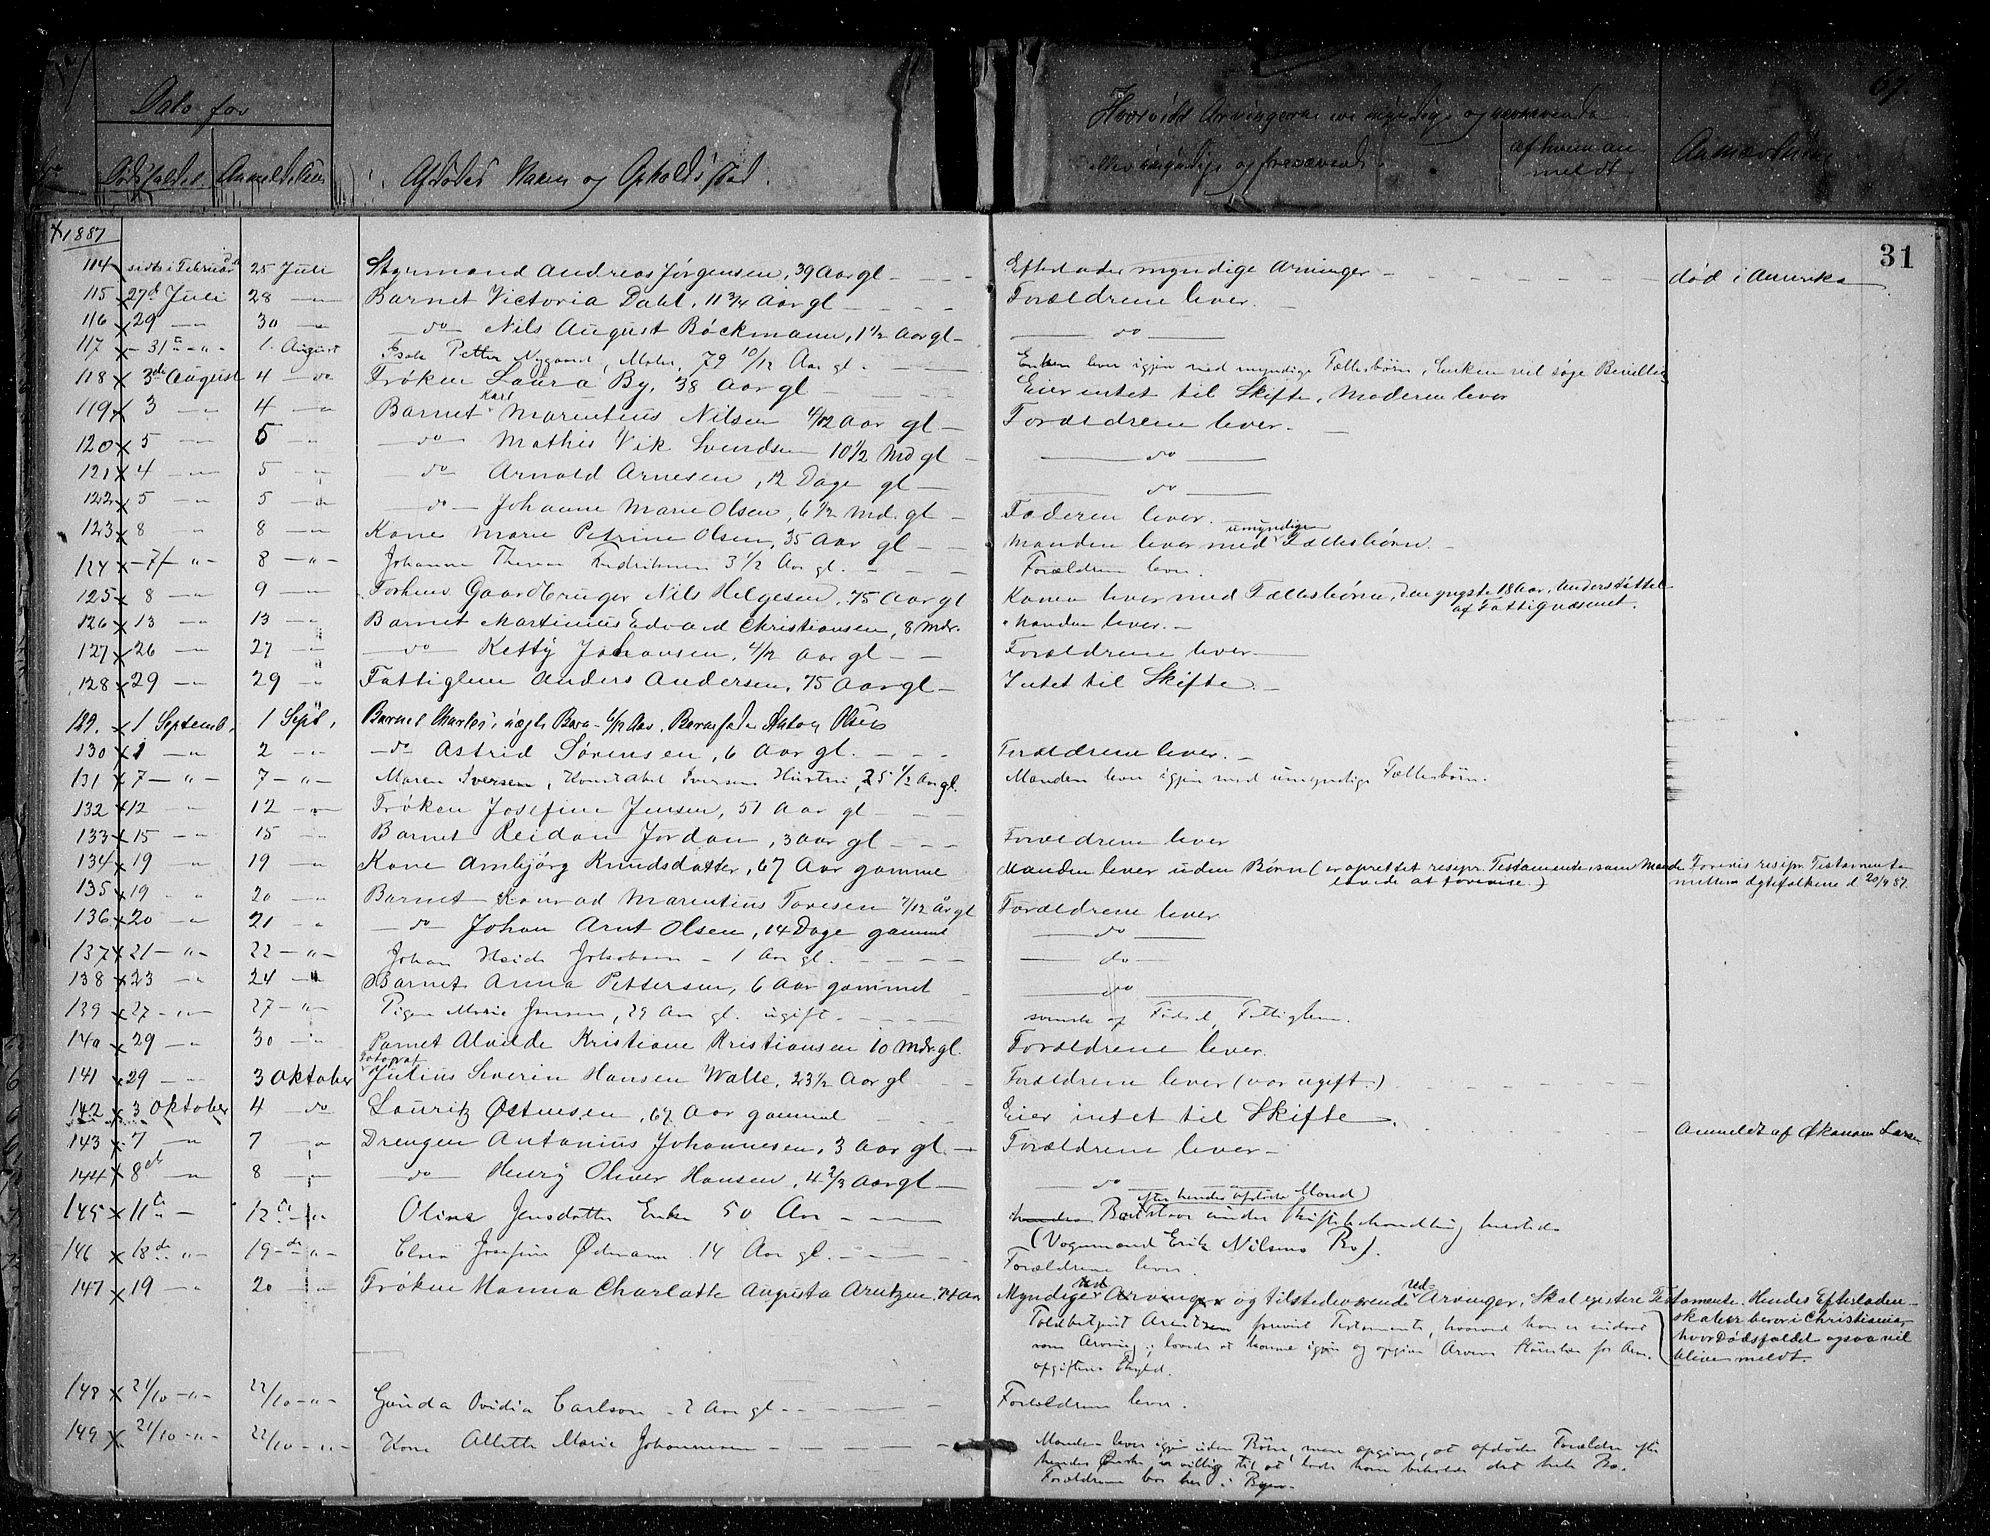 69.
Dato for
Hvorvidt Arvingerne ere myndige og nærværende
eller umyndige og fraværende.
af hvem anmeldt
Dødsfaldet Anmeldelsen
Afdødes Navn og Opholdssted.
31
1887
114 sidst i Februar 25 Juli Styrmand Andreas Jørgensen, 39 Aar gl Efterlader myndige Arvinger død i Amerika
115 27d Juli 28 — Barnet Victoria Dahl, 11 3/4 Aar gl Forældrene lever.
116 29 — 30 — do Nils August Bøckmann, 1 1/2 Aar gl — do
117 31 — 1. August Petter Nygaard, 79 10/12 Aar gl. Enken lever igjen med myndige Fællesbørn, Enken vil søge Bevilling
118 3de August 4 — do Frøken Laura By, 38 Aar gl Eier intet til Skifte, Moderen lever
119 3 — 4 — Barnet Karl Marentius Nilsen 4/12 Aar gl Forældrene lever.
120 5 — 5 — do Mathis Vik Svendsen 10 1/2 Md gl — do
121 4 — 5 — do Arnold Arnesen, 12 Dage gl — do
122 5 — 5 — do Johanne Marie Olsen, 6 1/2 Md. gl Faderen lever.
123 8 — 8 — Kone Marie Petrine Olsen, 35 Aar gl Manden lever med umyndige Fællesbørn.
124 7 — 8 — Johanne Fredriksen 3 1/2 Aar gl. Forældrene lever.
125 8 — 9 — Forhenv Gaardbruger Nils Helgesen, 75 Aar gl Konen lever med Fællesbørn, den yngste 18 aar, Understøttet
af Fattigvæsenet.
126 13 — 13 — Barnet Martinius Edvard Christiansen, 8 Mdr. Manden lever.
127 26 — 27 — do Ketty Johansen, 4/12 Aar gl Forældrene lever
128 29 — 29 — Fattiglem Anders Andersen, 75 Aar gl Intet til Skifte.
129. 1 Septemb. 1 Sept. Barnet Charles, uægte Barn 6/12 Aar. Barnefader Anton Olsen
130 1 — 2 — do Astrid Sørensen, 6 Aar gl. Forældrene lever.
131 7 — 7 — Maren Iversen, Konstabel Iversens Hustru, 25 1/2 Aar gl. Manden lever igjen med umyndige Fællesbørn.
132 12 12 — Frøken Josefine Jensen, 51 Aar gl
133 15 — 15 — Barnet Reidar Jordan, 3 aar gl Forældrene lever
134 19 — 19 — Kone Ambjørg Knudsdatter, 67 Aar gamme Manden lever uden Børn (er oprettet resipr. Testamente, som Mande Forevis resipr. Testamente
lovede at forevise.) mellem Ægtefolkene d 20/9 87.
135 19 20 — Barnet Konrad Marentius Toresen 7/12 År gl Forældrene lever
136 20 — 21 — do Johan Arnt Olsen, 14 Dage gammel — do
137 21 — 22 — Johan Jakobsen — 1 Aar gl. — do
138 23 — 24 — Barnet Anna Pettersen, 6 Aar gammel — do
139 27 — 27 — Pigen Marie Jensen, 29 Aar gl. ugift. svensk af Fødsel, Fattiglem.
140 29 — 30 — Barnet Alvilde Kristiane Kristiansen 10 Mdr. gl. Forældrene lever.
141 29 — 3 Oktober Fotograf Julius Severin Hansen Walle, 23 1/2 Aar gl Forældrene lever (var ugift.)
142 3 Oktober 4 — do Lauritz Østensen, 67 Aar gammel Eier intet til Skifte.
143 7 — 7 — Drengen Antonius Johannesen, 3 Aar gl. Forældrene lever — Anmeldt af Økonom Larsen
144 8de — 8 — do Henry Oliver Hansen, 4 2/3 Aar gl — do
efter hendes afdøde Mand)
145 11te 12te Oline Jensdatter Enke 50 Aar Boet staar under Skiftebehandling herstede
(Vognmand Erik Nilsens Bo).
146 18de 19de Josefine Ødmann. 14 Aar gl. Forældrene lever.
147 19 — 20 — Frøken Hanna Charlotte Augusta Arntzen. 74 Aar Myndige Arvinger og tilstedeværende Arvinger, Skal existere Testamente. Hendes Efterladen-
Toldbetjent Arentzen foreviste Testamente, hvorved han er indsat skaber beror i Christiania,
som Arving; lovede at komme igjen og opgive Arvens Størrelse for Arve hvor Dødsfaldet ogsaa vil
afgiftens Skyld. blive meldt.
148 21/10 22/10 Gunda Ovidia Carlson — 2 Aar gl. Forældrene lever.
149 21/10 22/10 Kone Allette Marie Johannesen Manden lever igjen uden Børn, men opgiver, at afdødes Forældre efter
hendes Ønske er villig til at lade ham beholde det hele Bo.
Forældrene bor her i Byen.